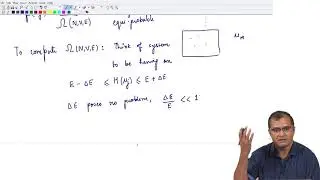 Ω(N,V,E) equi-probable
To compute Ω(N,V,E) : Think of system
to be having an
E - ΔE ≤ H(μ) ≤ E + ΔE
ΔE poses no problem, ΔE/E << 1